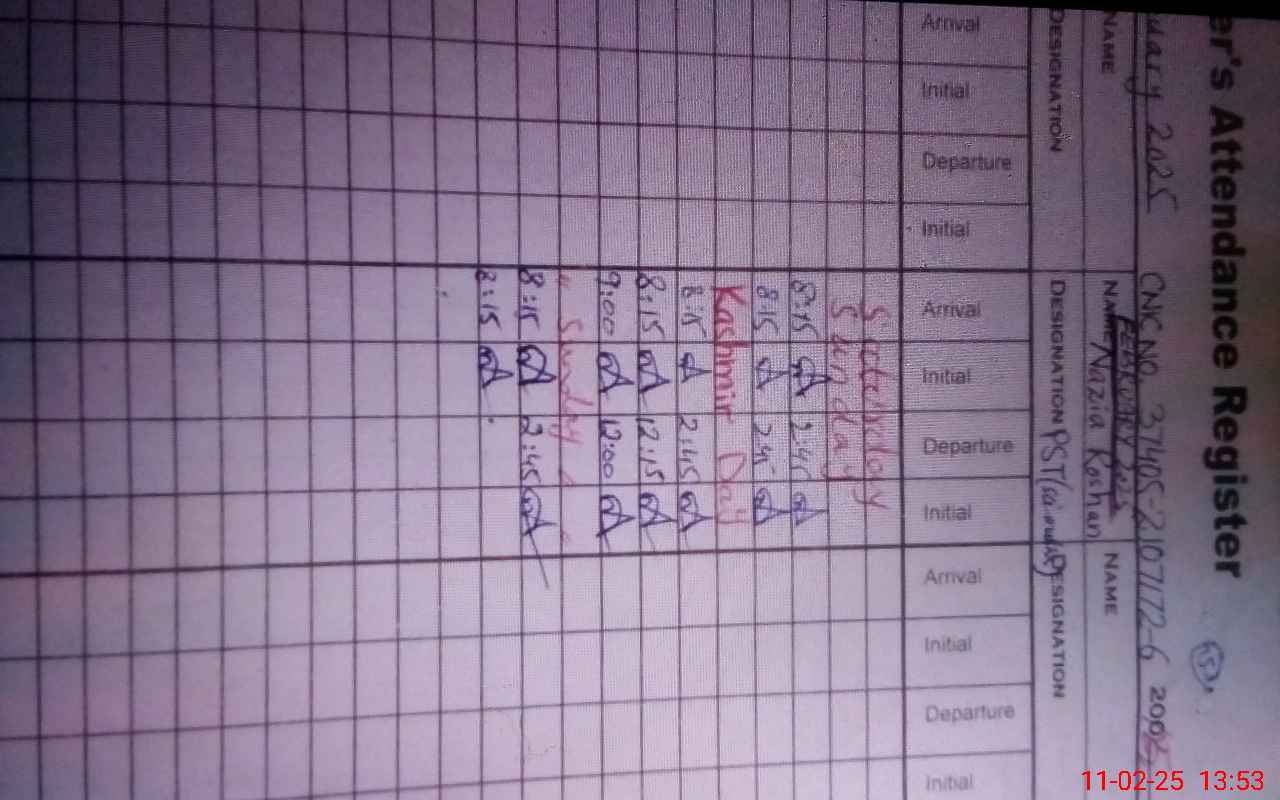 er's Attendance Register
uary 2025 CNIC NO. 37405-2107172-6 200
NAME FEBRUARY 2025 NAME
NAME Nazia Roshan
DESIGNATION DESIGNATION PST DESIGNATION
Arrival Initial Departure Initial Arrival Initial Departure Initial Arrival Initial Departure Initial
Saturday
Sunday
8:15 2:45
8:15 2:45
Kashmir Day
8:15 2:45
8:15 12:15
9:00 12:00
" Sunday "
8:15 2:45
8:15
11-02-25 13:53